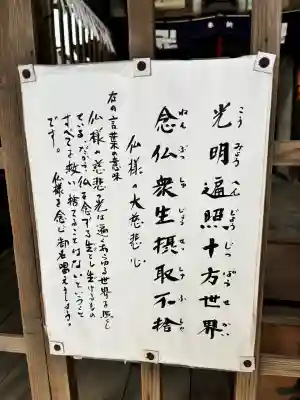 光明遍照十方世界
こうみょうへんじょうじっぽうせかい
念仏衆生摂取不捨
ねんぶっしゅじょうせっしゅふしゃ
仏様の大慈悲心
右の言葉の意味
仏様の慈悲の光は遍くあらゆる世界を照らし
ている。だから仏を念ずる生とし生けるもの
すべてを救い捨てることはないということ
です。
仏様を念じ御名唱えましょう。